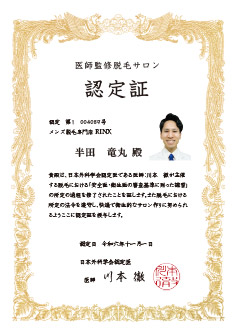 医師監修脱毛サロン
認定証
メンズ脱毛専門店 RINX
半田 竜丸 殿
貴殿は、日本外科学会認定医である医師:川本 徹が主催
する脱毛における「安全面・衛生面の審査基準に則った講習」
の所定の過程を修了されたことを証します。また脱毛における
所定の法令を遵守し、快適で衛生的なサロン作りに努められ
るようここに認定証を授与します。
認定日 令和六年十一月一日
日本外科学会認定医
医師 川本 徹